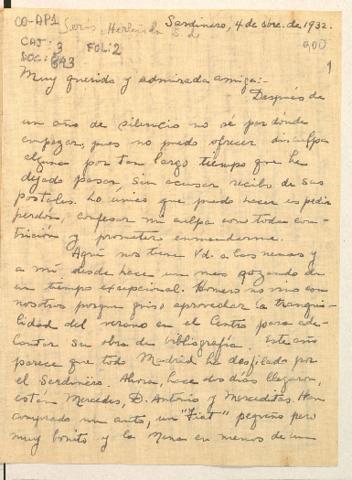 CO-AP1 Serís, Herlinda S. de
Sardinero, 4 de sbre. de 1932.
CAJ: 3 FOL: 2
DOC: 693
1
Muy querida y admirada amiga:-
Después de
un año de silencio no sé por dónde
empezar, pues no puedo ofrecer disculpa
alguna por tan largo tiempo que he
dejado pasar, sin acusar recibo de sus
postales. Lo único que puedo hacer es pedir
perdón, confesar mi culpa con toda con-
trición y prometer enmendarme.
Aquí nos tiene Vd. a las nenas y
a mí, desde hace un mes gozando de
un tiempo excepcional. Homero no vino con
nosotros porque quiso aprovechar la tranqui-
lidad del verano en el Centro para ade-
lantar su obra de bibliografía. Este año
parece que todo Madrid ha desfilado por
el Sardinero. Ahora, hace dos días llegaron,
están Mercedes, D. Antonio y Merceditas. Han
comprado un auto, un "Fiat" pequeño pero
muy bonito y la nena en menos de un